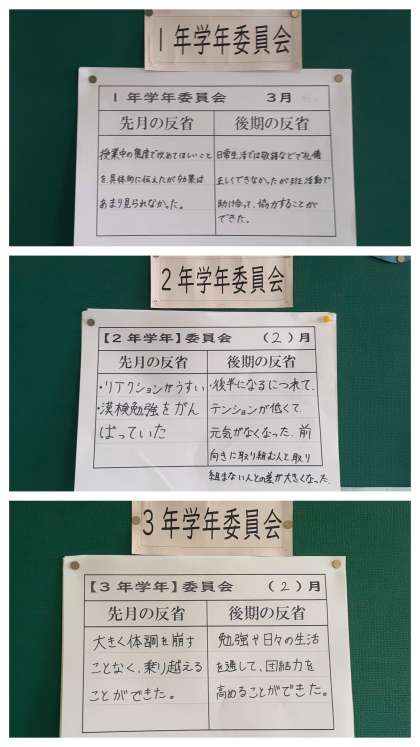 1年学年委員会
1年学年委員会 3月
先月の反省 後期の反省
授業中の態度で改めてほしいこと
を、具体的に伝えたが効果は
あまり見られなかった。
日常生活では敬語などで礼儀
正しくできなかったが班活動で
助け合って、協力することが
できた。
2年学年委員会
【2年学年】委員会 (2)月
先月の反省 後期の反省
・リアクションがうすい
・漢検勉強をがん
ばっていた
・後半になるにつれて、
テンションが低くて、
元気がなくなった。前
向きに取り組む人と取り
組まない人との差が大きくなった。
3年学年委員会
【3年学年】委員会 (2)月
先月の反省 後期の反省
大きく体調を崩す
ことなく、乗り越える
ことができた。
勉強や日々の生活
を通して、団結力を
高めることができた。